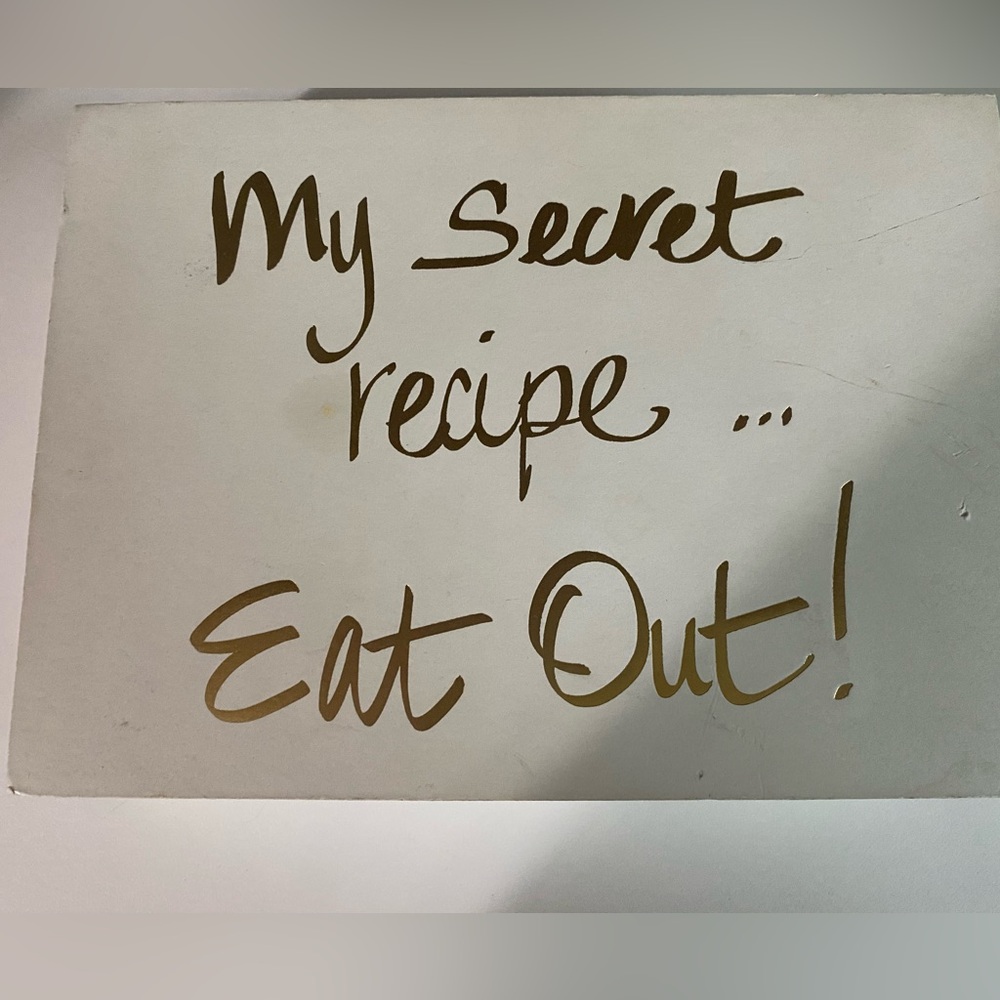 My Secret
recipe ...
Eat Out!